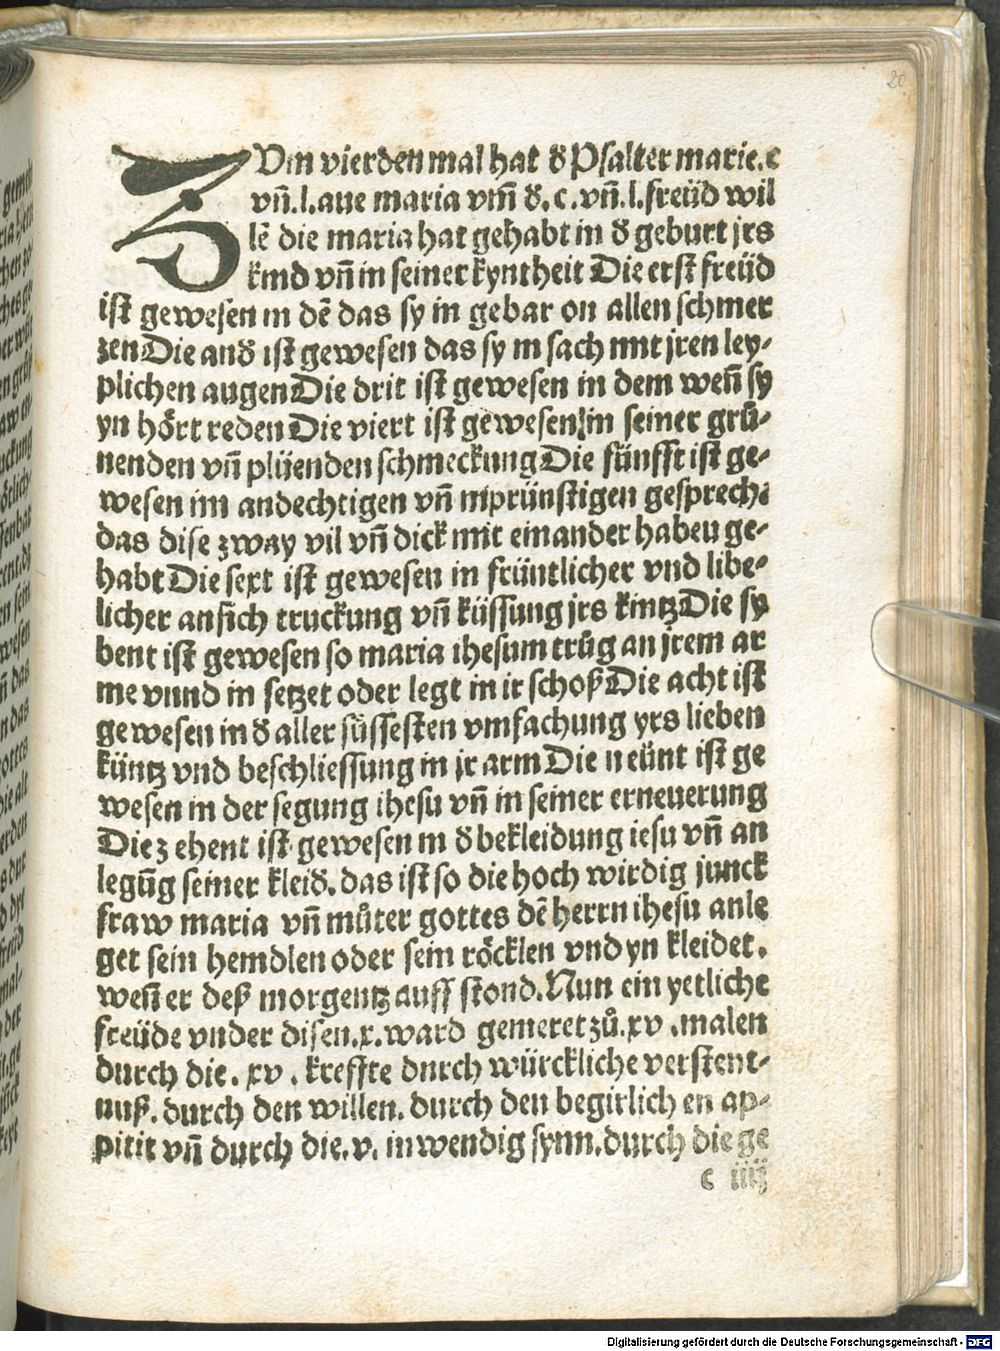 20
ZVm vierden mal hat ď Psalter marie.c
vn̄.l.aue maria vm̄ ď.c.vn̄.l.freüd wil
lē die maria hat gehabt in ď geburt jrs
kind vn̄ in seiner kyntheit Die erst freüd
ist gewesen in dē das sy in gebar on allen schmer
zen Die anď ist gewesen das sy in sach mit jren ley-
plichen augen Die drit ist gewesen in dem wen̄ sy
yn hört reden Die viert ist gewesen in seiner grů-
nenden vn̄ plüenden schmeckung Die fünfft ist ge-
wesen im andechtigen vn̄ inprünstigen gesprech.
das dise zway vil vn̄ dick mit einander habeu ge-
habt Die sext ist gewesen in früntlicher vnd libe-
licher ansich truckung vn̄ küssung jrs kintz Die sy
bent ist gewesen so maria ihesum trůg an jrem ar
me vnnd in setzet oder legt in ir schoß Die acht ist
gewesen in ď aller süssesten vmfachung yrs lieben
küntz vnd beschliessung in jr arm Die neünt ist ge
wesen in der segung ihesu vn̄ in seiner erneuerung
Die zehent ist gewesen in ď bekleidung iesu vn̄ an
legūg seiner kleiď.das ist so die hoch wirdig junck
fraw maria vn̄ můter gottes dē herrn ihesu anle
get sein hemdlen oder sein röcklen vnd yn kleidet.
wen̄ er deß morgentz auff stond.Nun ein yetliche
freüde vnder disen.x.ward gemeret zů.xv.malen
durch die.xv.kreffte dnrch würckliche verstent-
nuß.durch den willen.durch den begirlichen ap-
pitit vn̄ durch die.v.inwendig synn.durch die ge
c iiij
Digitalisierung gefördert durch die Deutsche Forschungsgemeinschaft - DFG